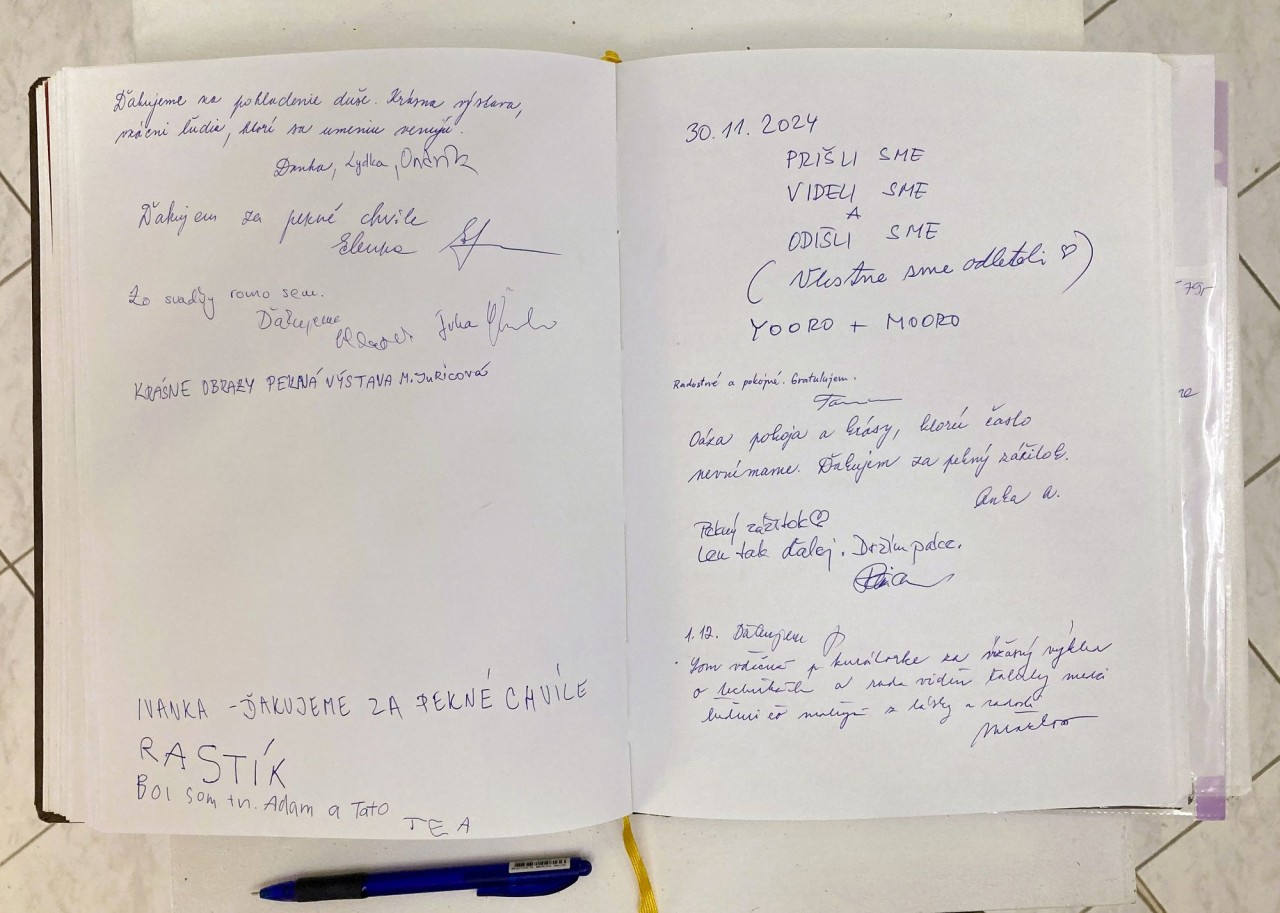 Ďakujeme za pohladenie duše. Krásna výstava,
vzácni ľudia, ktorí sa umeniu venujú.
Danka, Lydka, Ondrík
Ďakujem za pekné chvíle
Elenka
Zo svadby rovno sem.
Ďakujeme
Juka
KRÁSNE OBRAZY PEKNÁ VÝSTAVA M. JURICOVÁ
IVANKA - ĎAKUJEME ZA PEKNÉ CHVÍLE
RASTÍK
BOl som tu. Adam a Tato
TEA
30.11.2024
PRIŠLI SME
VIDELI SME
A
ODIŠLI SME
(Vlastne sme odleteli ♡)
YOORO + MOORO
Radostné a pokojné. Gratulujem.
Oáza pokoja a krásy, ktorú často
nevnímame. Ďakujem za pekný zážitok.
Anka A.
Pekný zážitok ♡
Len tak ďalej. Držím palce.
1.12. Ďakujem
Som vďačná p kurátorke za úžasný výklad
o technikách a rada vidím talenty medzi
ľuďmi čo z lásky a radosti